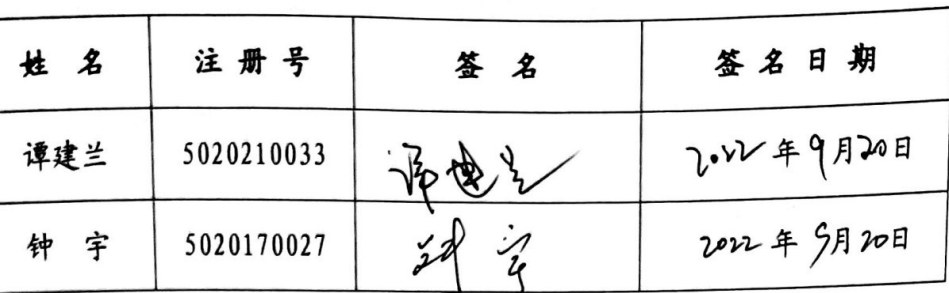 姓 名 注册号 签 名 签名日期
谭建兰 5020210033 谭建兰 2022年9月20日
钟 宇 5020170027 钟宇 2022年9月20日